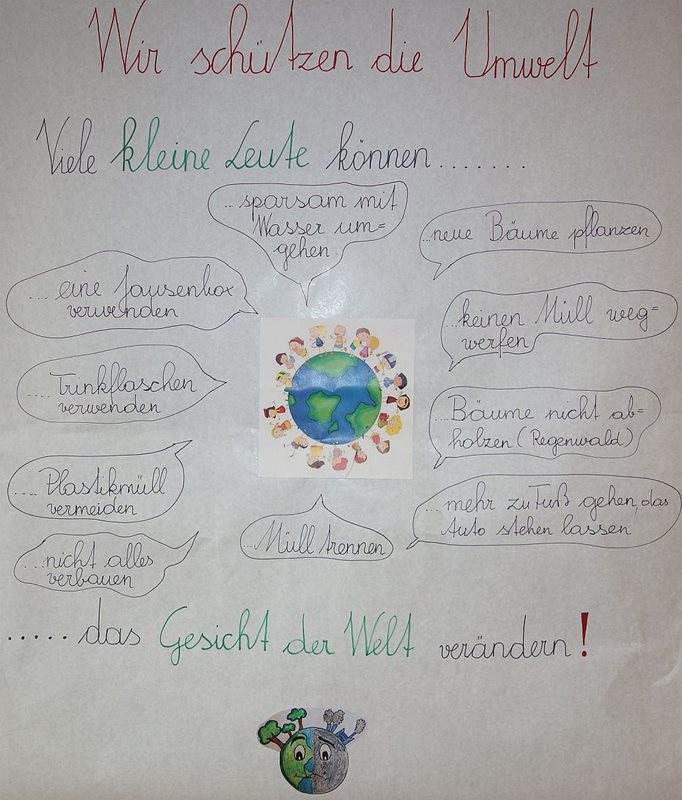 Wir schützen die Umwelt
Viele kleine Leute können.......
...sparsam mit
Wasser um=
gehen
...neue Bäume pflanzen
.... eine Jausenbox
verwenden
...keinen Müll weg=
werfen
.... Trinkflaschen
verwenden
...Bäume nicht ab=
holzen (Regenwald)
.... Plastikmüll
vermeiden
...mehr zu Fuß gehen, das
Auto stehen lassen
...Müll trennen
...nicht alles
verbauen
..... das Gesicht der Welt verändern!